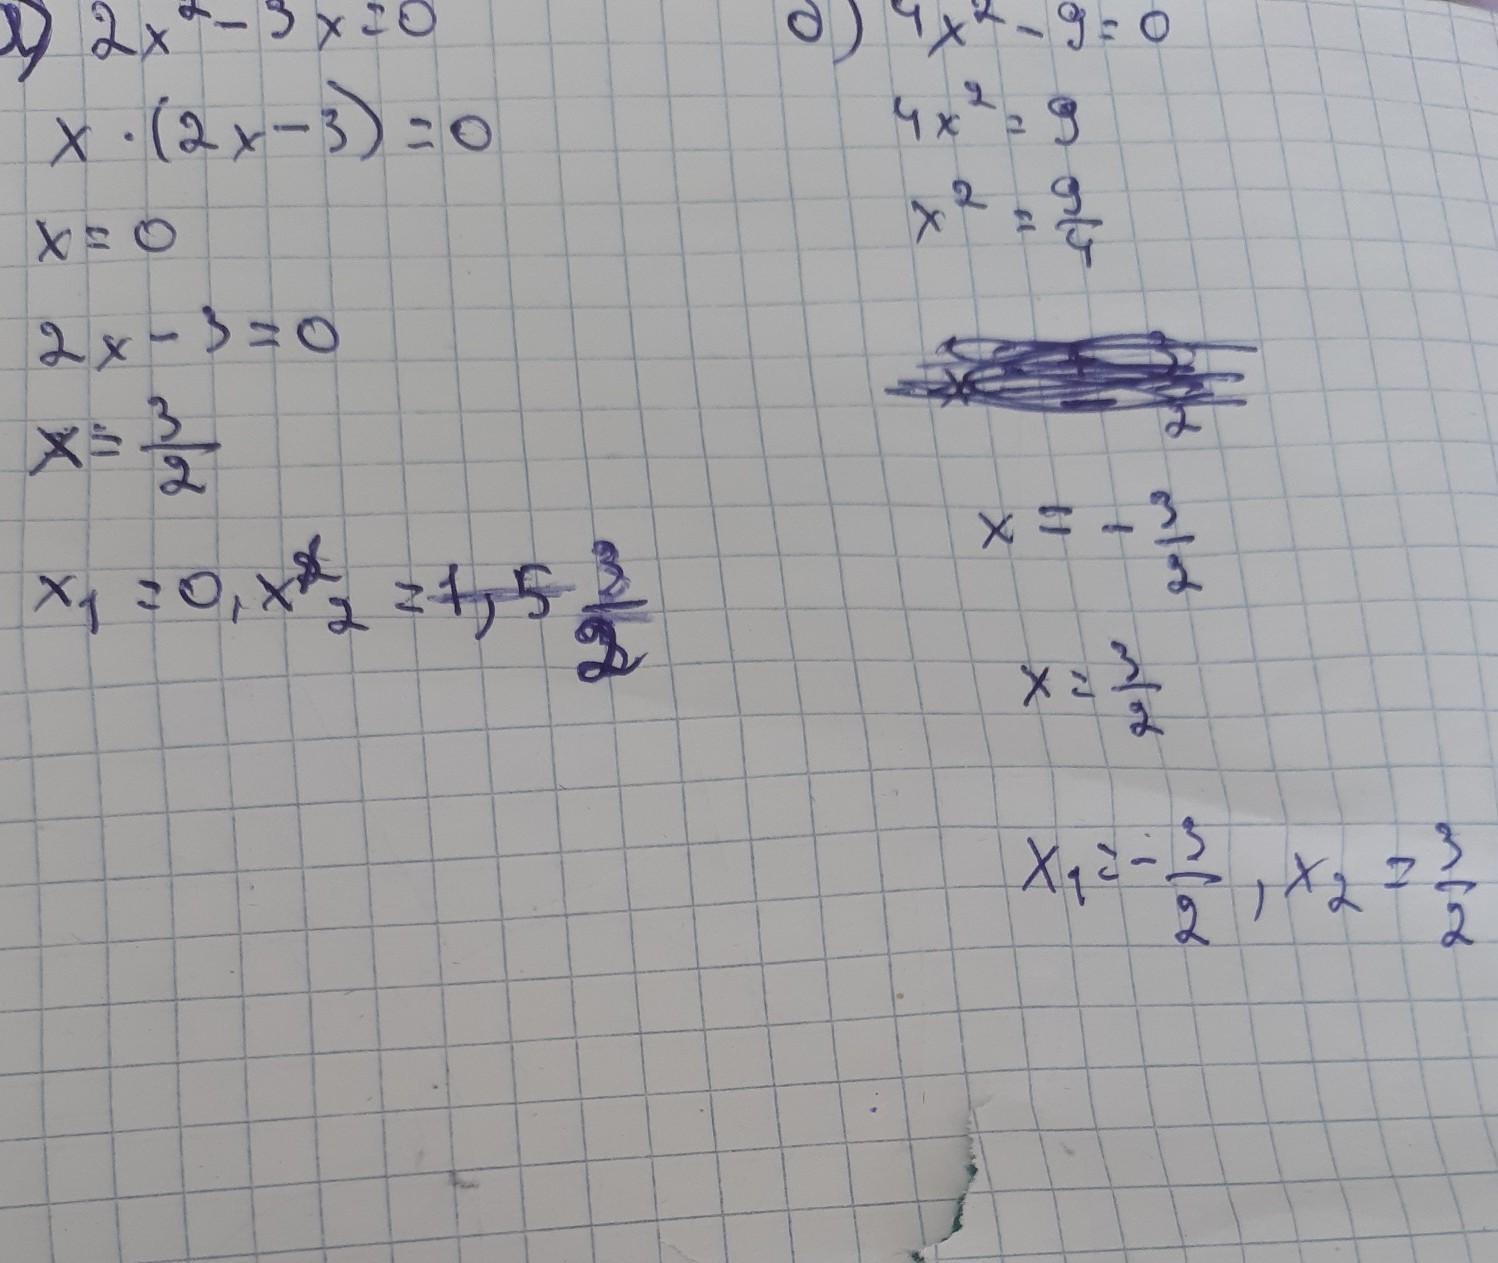 а) 2x² - 3x = 0
x · (2x - 3) = 0
x = 0
2x - 3 = 0
x = 3/2
x₁ = 0, x₂ = 1,5 3/2
б) 4x² - 9 = 0
4x² = 9
x² = 9/4
x = - 3/2
x = 3/2
x₁ = - 3/2, x₂ = 3/2